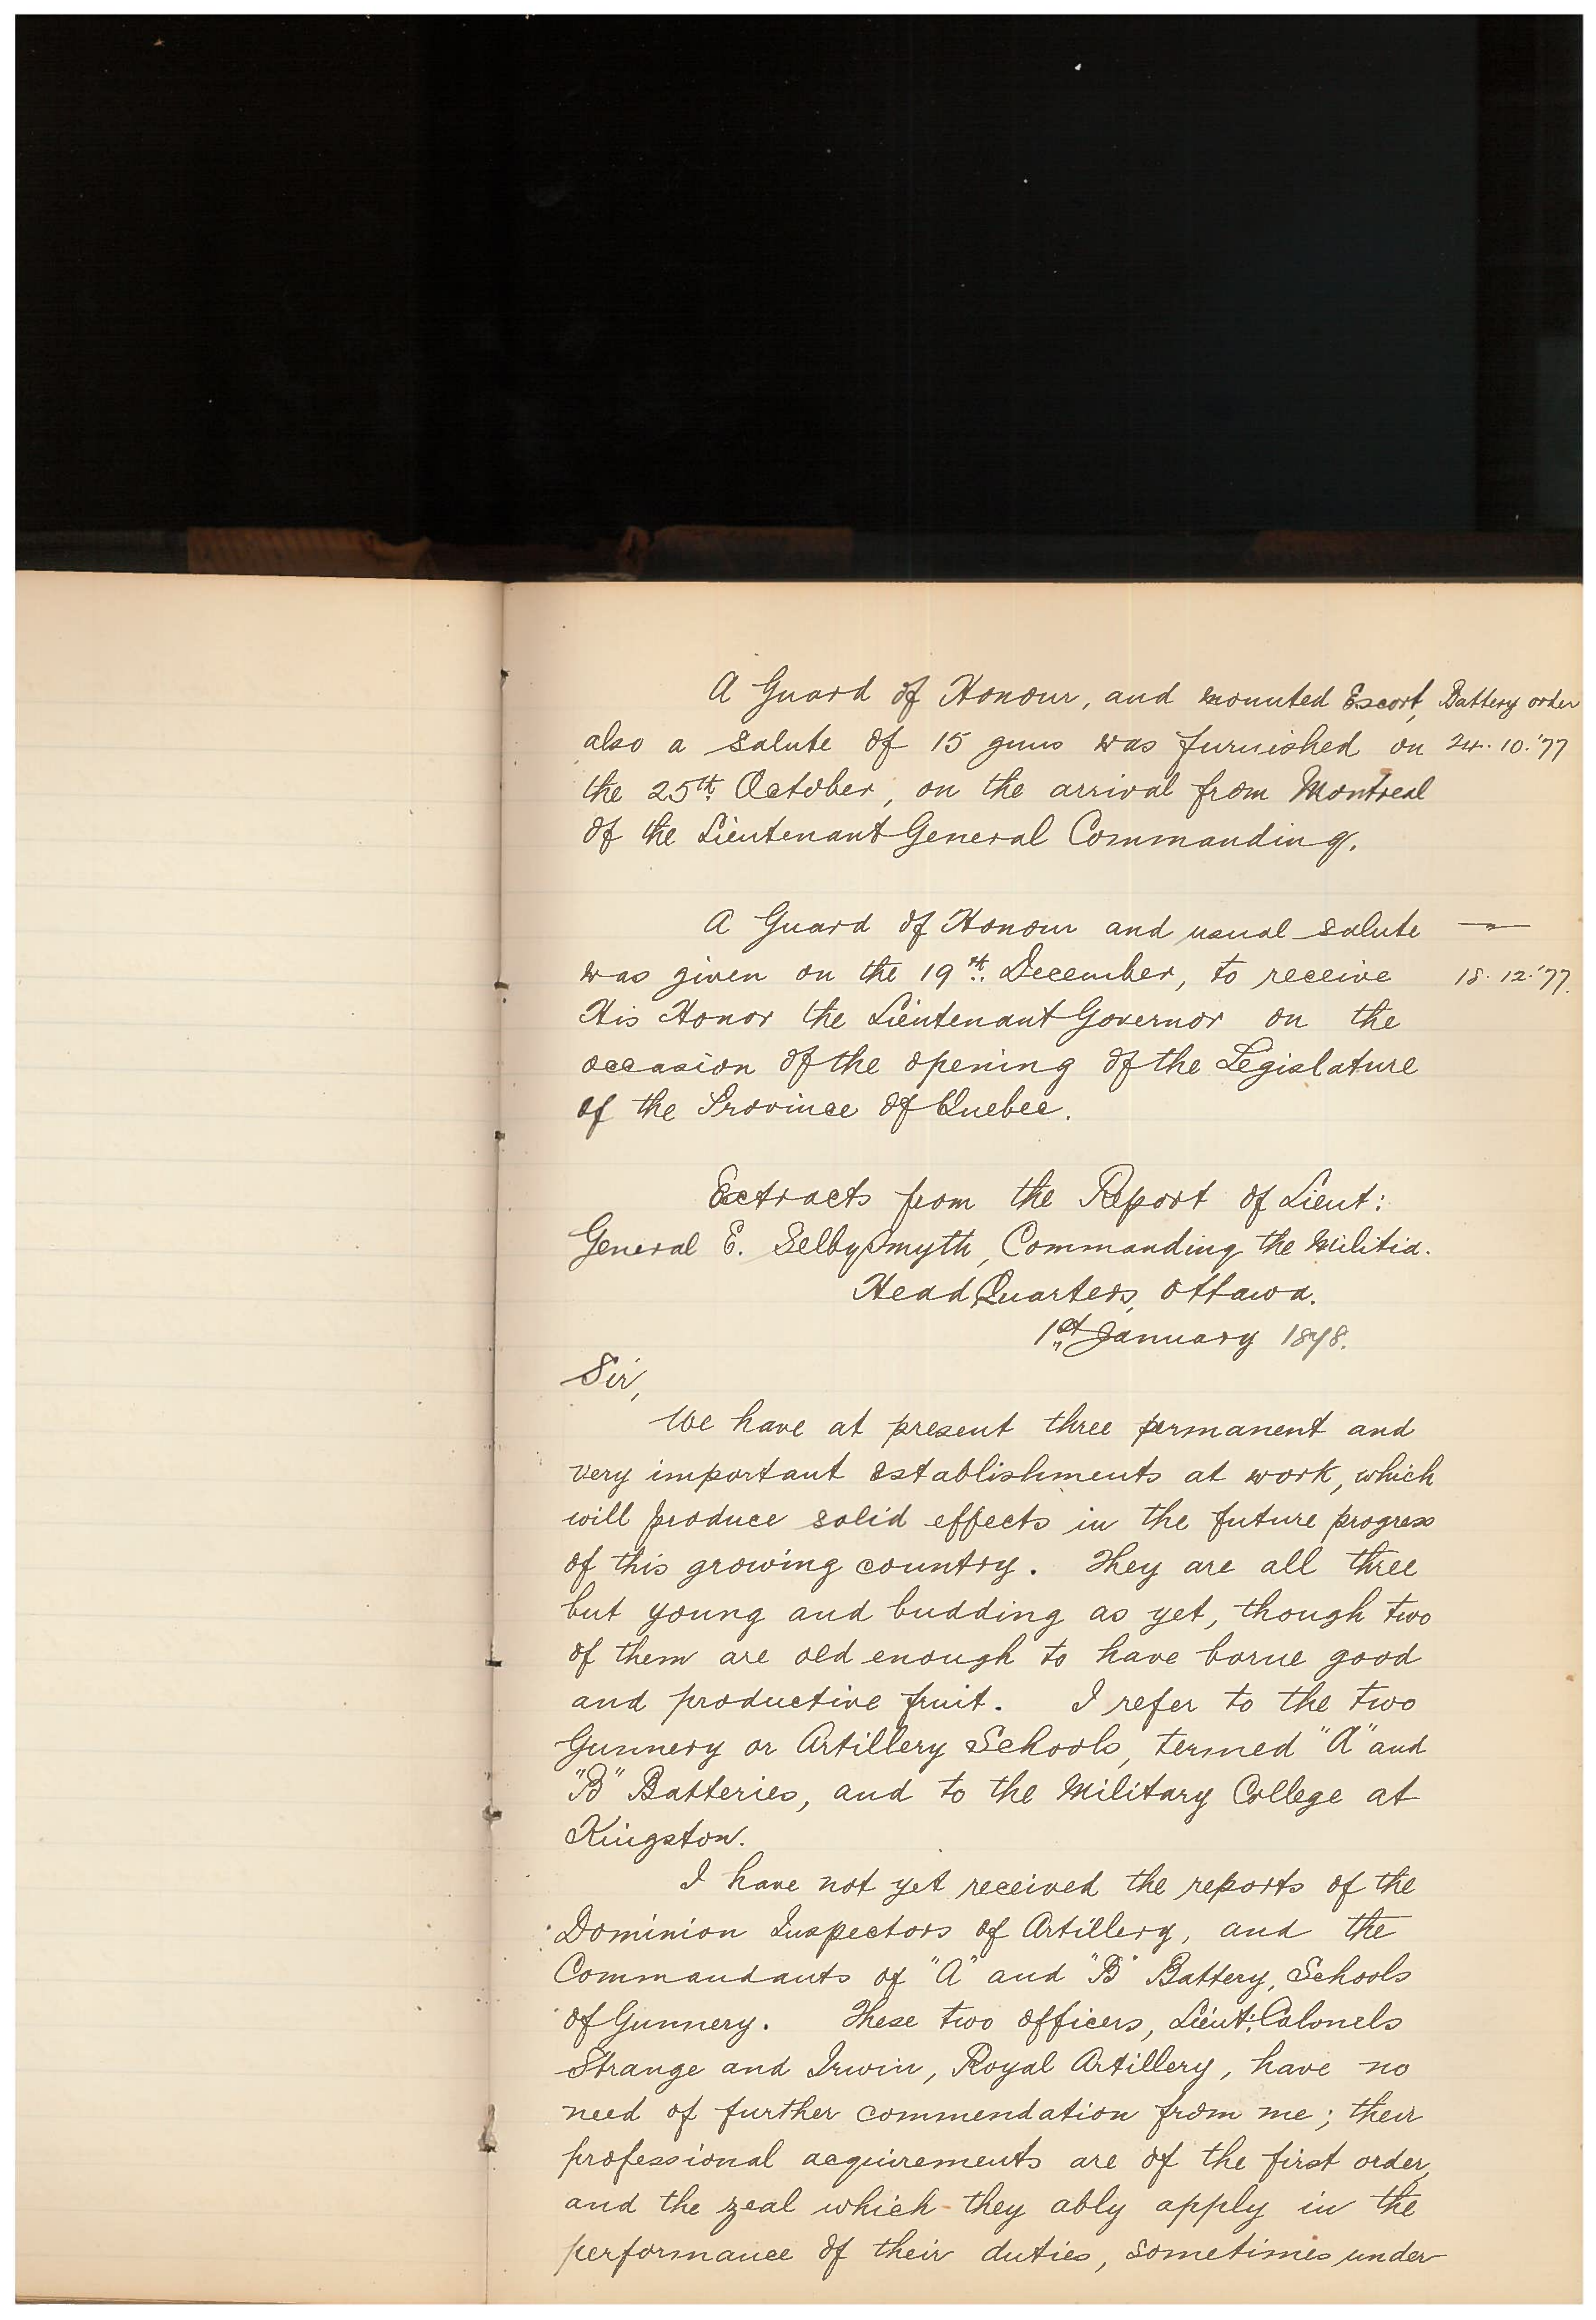 A Guard of Honour, and mounted Escort, Battery order
also a salute of 15 guns was furnished on 24.10.'77
the 25th October, on the arrival from Montreal
of the Lieutenant General Commanding.
A Guard of Honour and usual salute — " —
was given on the 19th December, to receive 18.12.'77.
His Honor the Lieutenant Governor on the
occasion of the opening of the Legislature
of the Province of Quebec.
Extracts from the Report of Lieut:
General E. Selby Smyth, Commanding the Militia.
Head Quarters, Ottawa.
1st January 1878.
Sir,
We have at present three permanent and
very important establishments at work, which
will produce solid effects in the future progress
of this growing country. They are all three
but young and budding as yet, though two
of them are old enough to have borne good
and productive fruit. I refer to the two
Gunnery or Artillery Schools, termed "A" and
"B" Batteries, and to the Military College at
Kingston.
I have not yet received the reports of the
Dominion Inspectors of Artillery, and the
Commandants of "A" and "B" Battery, Schools
of Gunnery. These two officers, Lieut: Colonels
Strange and Irwin, Royal Artillery, have no
need of further commendation from me; their
professional acquirements are of the first order,
and the zeal which they ably apply in the
performance of their duties, sometimes under